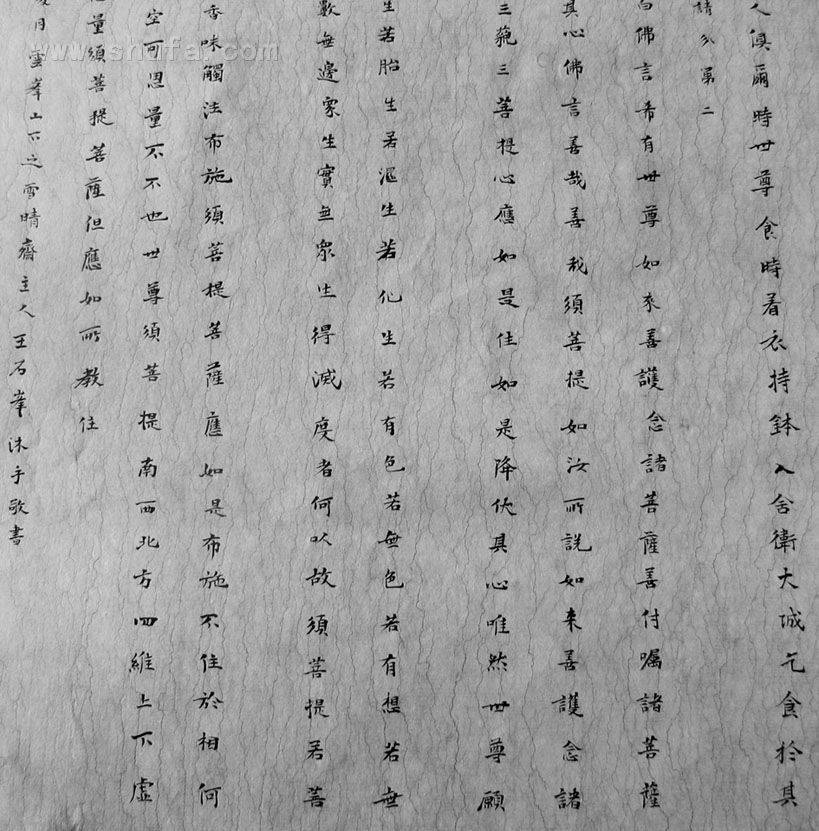 人俱爾時世尊食時着衣持鉢入舍衛大城乞食於其
請分第二
白佛言希有世尊如來善護念諸菩薩善付囑諸菩薩
其心佛言善哉善哉須菩提如汝所說如来善護念諸
三藐三菩提心應如是住如是降伏其心唯然世尊願
生若胎生若濕生若化生若有色若無色若有想若無
數無邊衆生實無衆生得滅度者何以故須菩提若菩
香味觸法布施須菩提菩薩應如是布施不住於相何
空可思量不不也世尊須菩提南西北方四維上下虛
量須菩提菩薩但應如所教住
月雲峯山下之雪晴齋主人王石峯沐手敬書
www.shufa.com